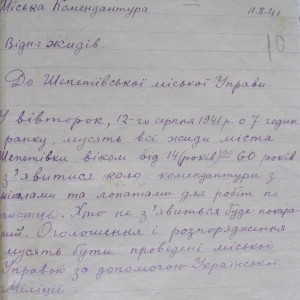 Міська Комендантура 11.8.41
10
Відн: жидів.
До Шепетівської міської Управи
У вівторок, 12-го серпня 1941 р. о 7 годин
ранку, мусять всі жиди міста
Шепетівки віком від 14 (років) до 60 років
з'явитися коло комендантури з
мітлами та лопатами для робіт по
Хто не з'явиться буде покара-
ний. Оголошення і розпорядження
мусять бути проведені міською
Управою за допомогою Української
Міліції